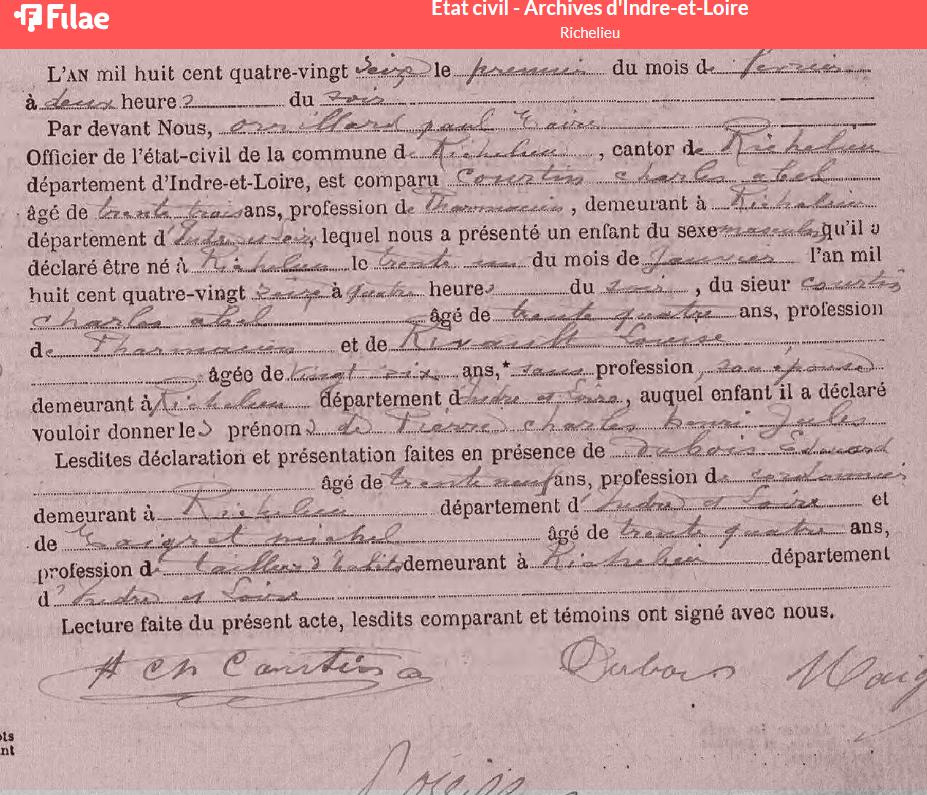 Filae
Etat civil - Archives d'Indre-et-Loire
Richelieu
L'AN mil huit cent quatre-vingt seize le premier du mois de février
à deux heures du soir
Par devant Nous, orillard paul
Officier de l'état-civil de la commune de Richelieu, canton de Richelieu
département d'Indre-et-Loire, est comparu Courtin charles abel
âgé de trente trois ans, profession de Pharmacien, demeurant à Richelieu
département d'Indre et Loire, lequel nous a présenté un enfant du sexe masculin qu'il a
déclaré être né à Richelieu le trente un du mois de Janvier l'an mil
huit cent quatre-vingt seize à quatre heures du soir, du sieur courtin
charles abel âgé de trente quatre ans, profession
de Pharmacien et de Rivault Louise
âgée de vingt six ans,* sans profession, son épouse
demeurant à Richelieu département d'Indre et Loire, auquel enfant il a déclaré
vouloir donner les prénoms de Pierre charles henri Jules
Lesdites déclaration et présentation faites en présence de Dubois Edouard
âgé de trente neuf ans, profession de cordonnier
demeurant à Richelieu département d'Indre et Loire et
de Maigret michel âgé de trente quatre ans,
profession de tailleur d'habits demeurant à Richelieu département
d'Indre et Loire
Lecture faite du présent acte, lesdits comparant et témoins ont signé avec nous.
ch Courtin Dubois Maig
ots
nt